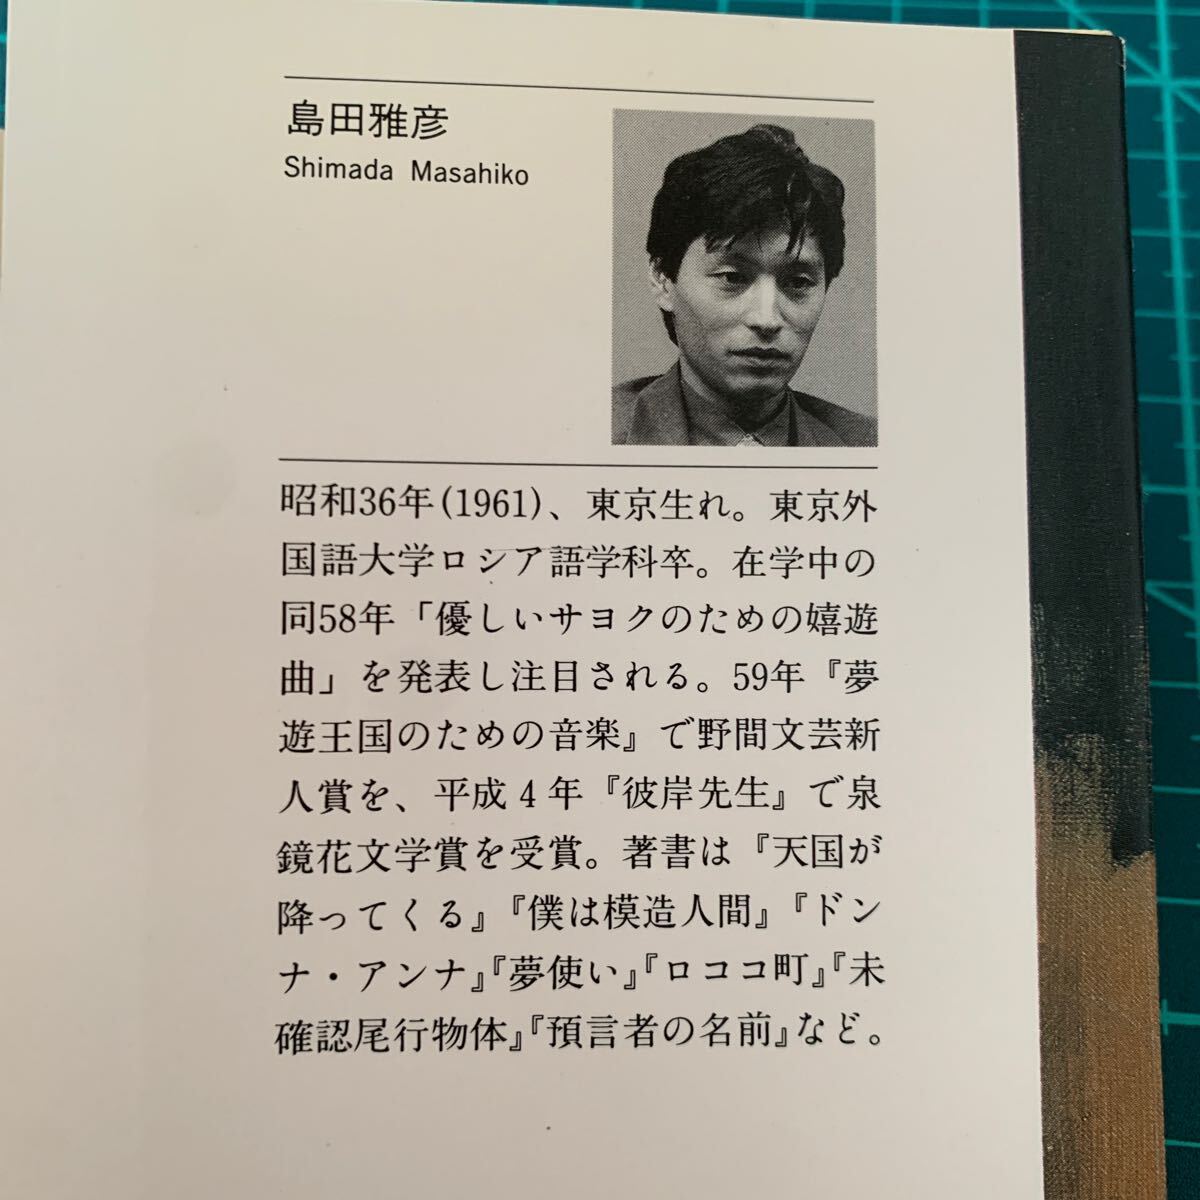 島田雅彦
Shimada Masahiko
昭和36年(1961)、東京生れ。東京外
国語大学ロシア語学科卒。在学中の
同58年「優しいサヨクのための嬉遊
曲」を発表し注目される。59年『夢
遊王国のための音楽』で野間文芸新
人賞を、平成4年『彼岸先生』で泉
鏡花文学賞を受賞。著書は『天国が
降ってくる』『僕は模造人間』『ドン
ナ・アンナ』『夢使い』『ロココ町』『未
確認尾行物体』『預言者の名前』など。